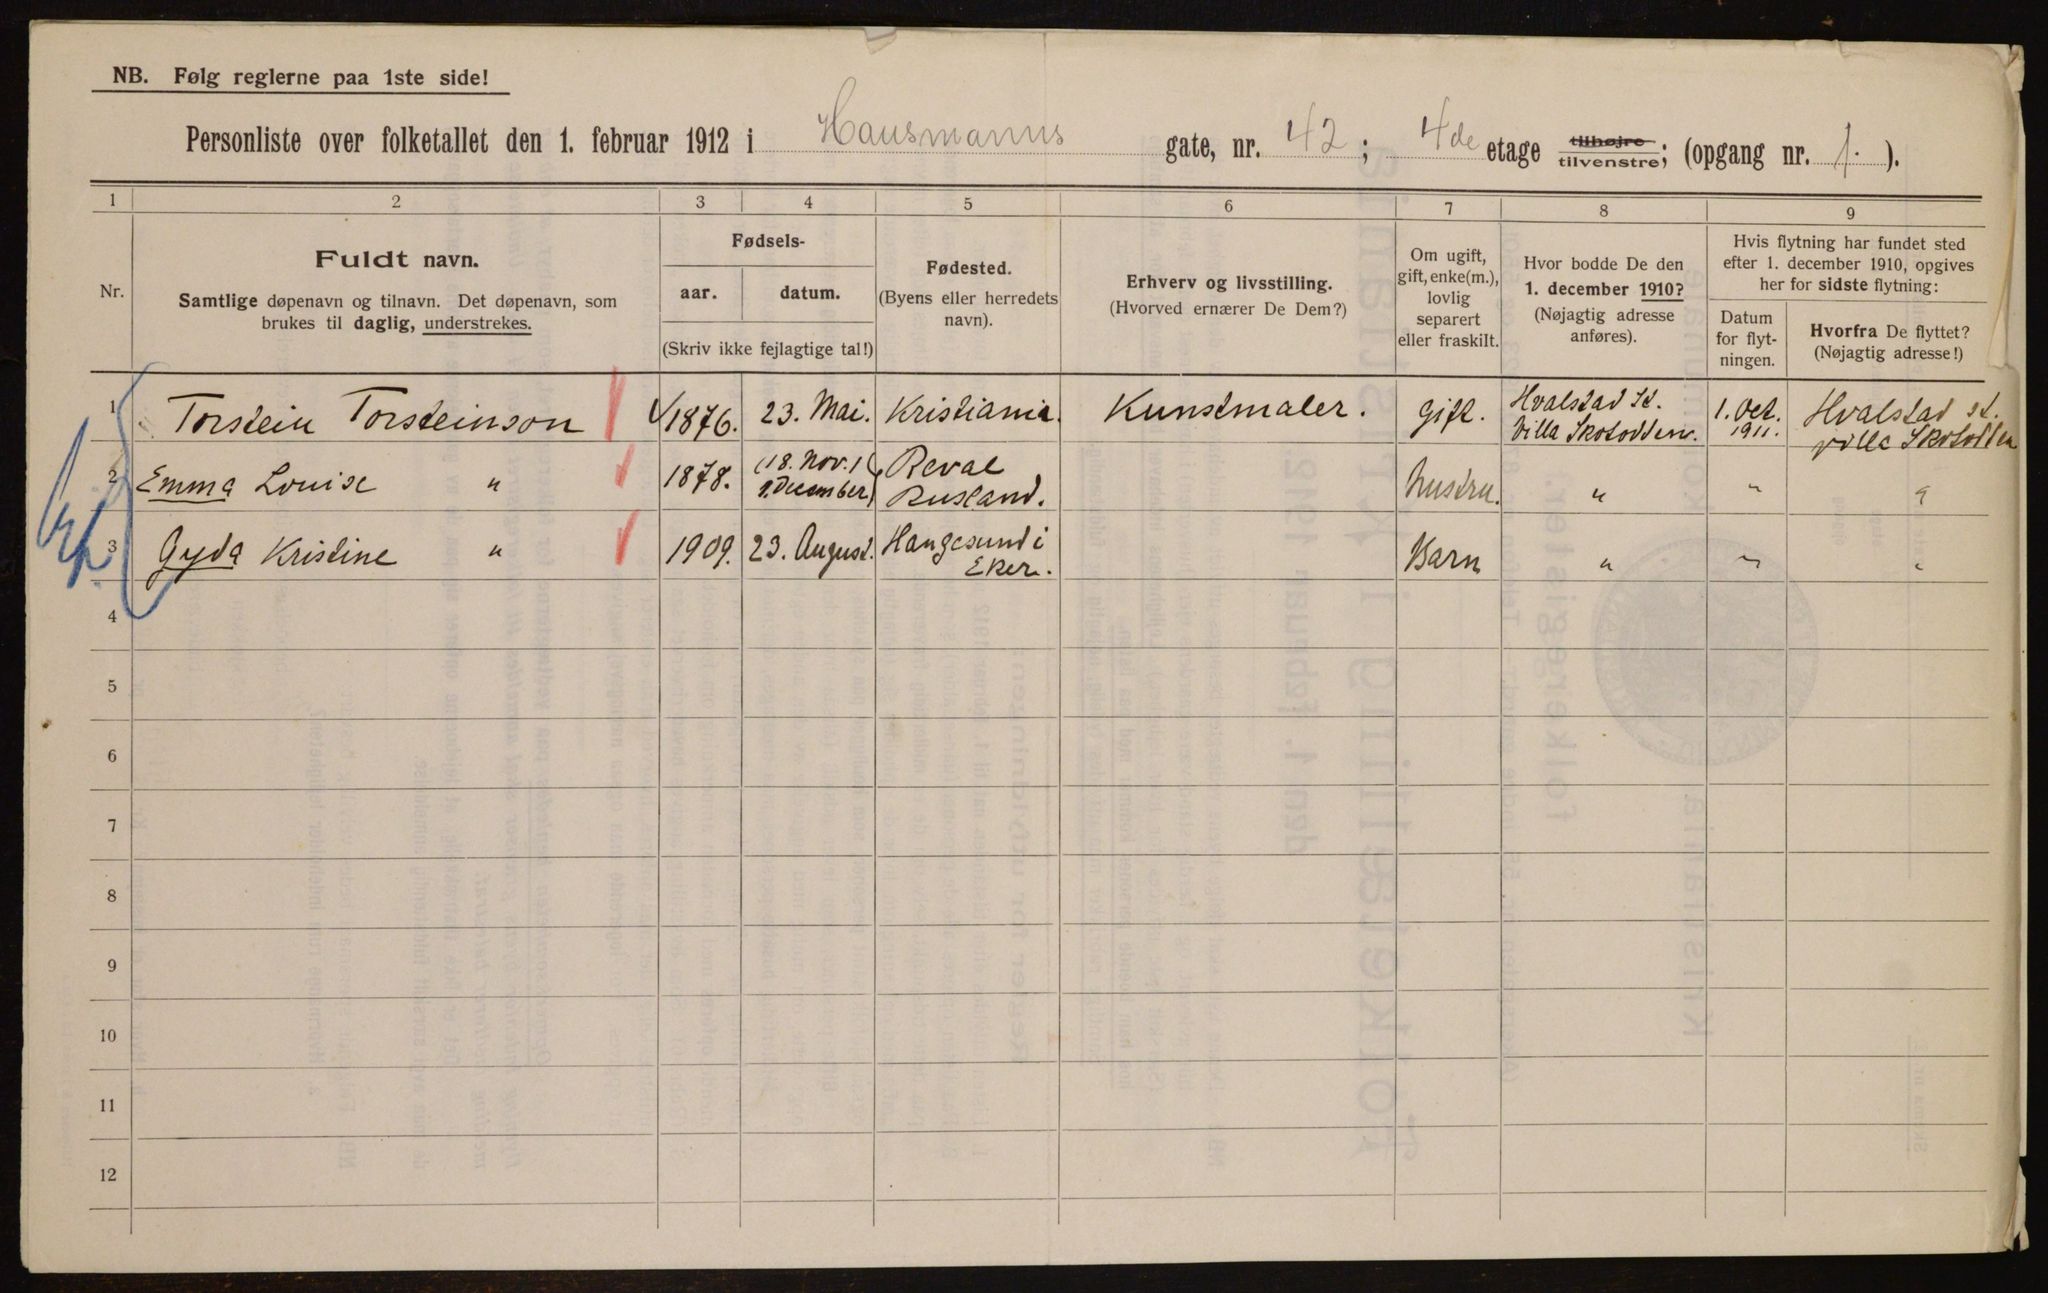 NB. Følg reglerne paa 1ste side!
Personliste over folketallet den 1. februar 1912 i Hausmanns gate, nr. 42; 4de etage tilhøjre tilvenstre; (opgang nr. 1.).
1 2 3 4 5 6 7 8 9
Nr.
Fuldt navn.
Samtlige døpenavn og tilnavn. Det døpenavn, som
brukes til daglig, understrekes.
Fødsels-
aar. datum.
(Skriv ikke fejlagtige tal!)
Fødested.
(Byens eller herredets
navn).
Erhverv og livsstilling.
(Hvorved ernærer De Dem?)
Om ugift,
gift, enke(m.),
lovlig
separert
eller fraskilt.
Hvor bodde De den
1. december 1910?
(Nøjagtig adresse
anføres).
Hvis flytning har fundet sted
efter 1. december 1910, opgives
her for sidste flytning:
Datum
for flyt-
ningen.
Hvorfra De flyttet?
(Nøjagtig adresse!)
1 Torstein Torsteinson 1876. 23. Mai. Kristiania. Kunstmaler. Gift. Hvalstad St. Villa Skotodden. 1. Oct. 1911. Hvalstad st. villa Skotodden
2 Emma Louise " 1878. (18. Nov.) 1 December Reval Rusland. Hustru. " " "
3 Gyda Kristine " 1909. 23. August. Haugesund i Eker. Barn " " "
4
5
6
7
8
9
10
11
12